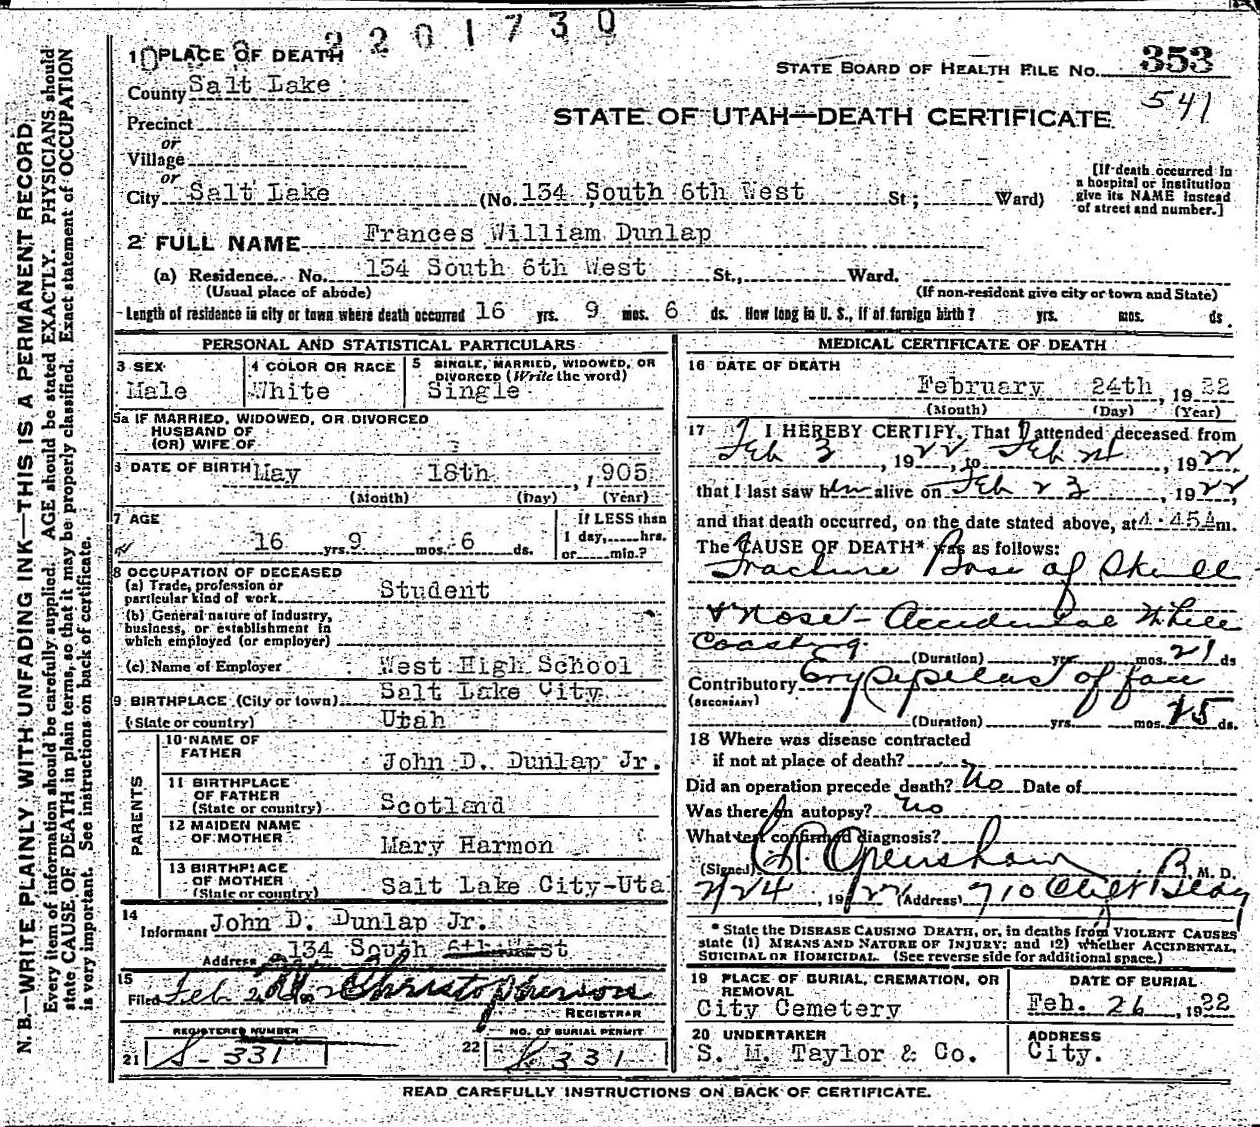 2201730
1 PLACE OF DEATH
STATE BOARD OF HEALTH FILE NO. 353
541
County Salt Lake
STATE OF UTAH—DEATH CERTIFICATE
Precinct
or
Village
or
City Salt Lake (No. 134 South 6th West St; Ward)
[If death occurred in
a hospital or institution
give its NAME instead
of street and number.]
2 FULL NAME Frances William Dunlap
(a) Residence. No. 134 South 6th West St., Ward.
(Usual place of abode) (If non-resident give city or town and State)
Length of residence in city or town where death occurred 16 yrs. 9 mos. 6 ds. How long in U. S., if of foreign birth? yrs. mos. ds.
PERSONAL AND STATISTICAL PARTICULARS
3 SEX
Male
4 COLOR OR RACE
White
5 SINGLE, MARRIED, WIDOWED, OR
DIVORCED (Write the word)
Single
5a IF MARRIED, WIDOWED, OR DIVORCED
HUSBAND OF
(OR) WIFE OF
6 DATE OF BIRTH May 18th, 1905
(Month) (Day) (Year)
7 AGE
16 yrs. 9 mos. 6 ds.
If LESS than
1 day, hrs.
or min.?
8 OCCUPATION OF DECEASED
(a) Trade, profession or
particular kind of work Student
(b) General nature of industry,
business, or establishment in
which employed (or employer)
(c) Name of Employer West High School
9 BIRTHPLACE (City or town) Salt Lake City
(State or country) Utah
PARENTS
10 NAME OF
FATHER John D. Dunlap Jr.
11 BIRTHPLACE
OF FATHER
(State or country) Scotland
12 MAIDEN NAME
OF MOTHER Mary Harmon
13 BIRTHPLACE
OF MOTHER
(State or country) Salt Lake City-Uta
14
Informant John D. Dunlap Jr.
Address 134 South 6th West
15
Filed Feb Christopherson
REGISTRAR
REGISTERED NUMBER
21 S-331
NO. OF BURIAL PERMIT
22 S 331
MEDICAL CERTIFICATE OF DEATH
16 DATE OF DEATH
February 24th, 1922
(Month) (Day) (Year)
17 I HEREBY CERTIFY, That I attended deceased from
Feb 3, 1922, to Feb 24, 1922
that I last saw him alive on Feb 23, 1922,
and that death occurred, on the date stated above, at 4.45A m.
The CAUSE OF DEATH* was as follows:
Fracture Base of Skull
& Nose - Accidental While
Coasting (Duration) yrs. mos. 21 ds
Contributory Erysipelas of face
(SECONDARY)
(Duration) yrs. mos. 15 ds.
18 Where was disease contracted
if not at place of death?
Did an operation precede death? No Date of
Was there an autopsy? No
What test confirmed diagnosis?
(Signed) Openshaw M. D.
2/24, 1922 (Address) 710 Clift Bldg
* State the DISEASE CAUSING DEATH, or, in deaths from VIOLENT CAUSES
state (1) MEANS AND NATURE OF INJURY; and (2) whether ACCIDENTAL,
SUICIDAL OR HOMICIDAL. (See reverse side for additional space.)
19 PLACE OF BURIAL, CREMATION, OR
REMOVAL
City Cemetery
DATE OF BURIAL
Feb. 26, 1922
20 UNDERTAKER
S. M. Taylor & Co.
ADDRESS
City.
READ CAREFULLY INSTRUCTIONS ON BACK OF CERTIFICATE.
N. B.—WRITE PLAINLY WITH UNFADING INK—THIS IS A PERMANENT RECORD
Every item of information should be carefully supplied. AGE should be stated EXACTLY. PHYSICIANS should
state CAUSE OF DEATH in plain terms, so that it may be properly classified. Exact statement of OCCUPATION
is very important. See instructions on back of certificate.